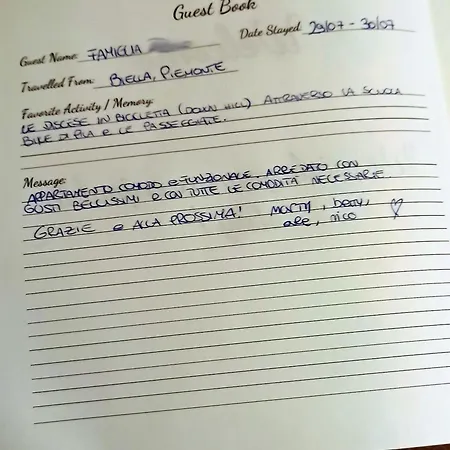 Guest Book
Guest Name: FAMIGLIA
Date Stayed 29/07 - 30/07
Travelled From: BIELLA, PIEMONTE
Favorite Activity / Memory:
LE DISCESE IN BICICLETTA (DOWN HILL) ATTRAVERSO LA SCUOLA
BIKE DI PILA E LE PASSEGGIATE.
Message:
APPARTAMENTO COMODO E FUNZIONALE, ARREDATO CON
GUSTI BELLISSIMI E CON TUTTE LE COMODITÀ NECESSARIE
GRAZIE e ALLA PROSSIMA! Marty, beny,
ale, nico ♡